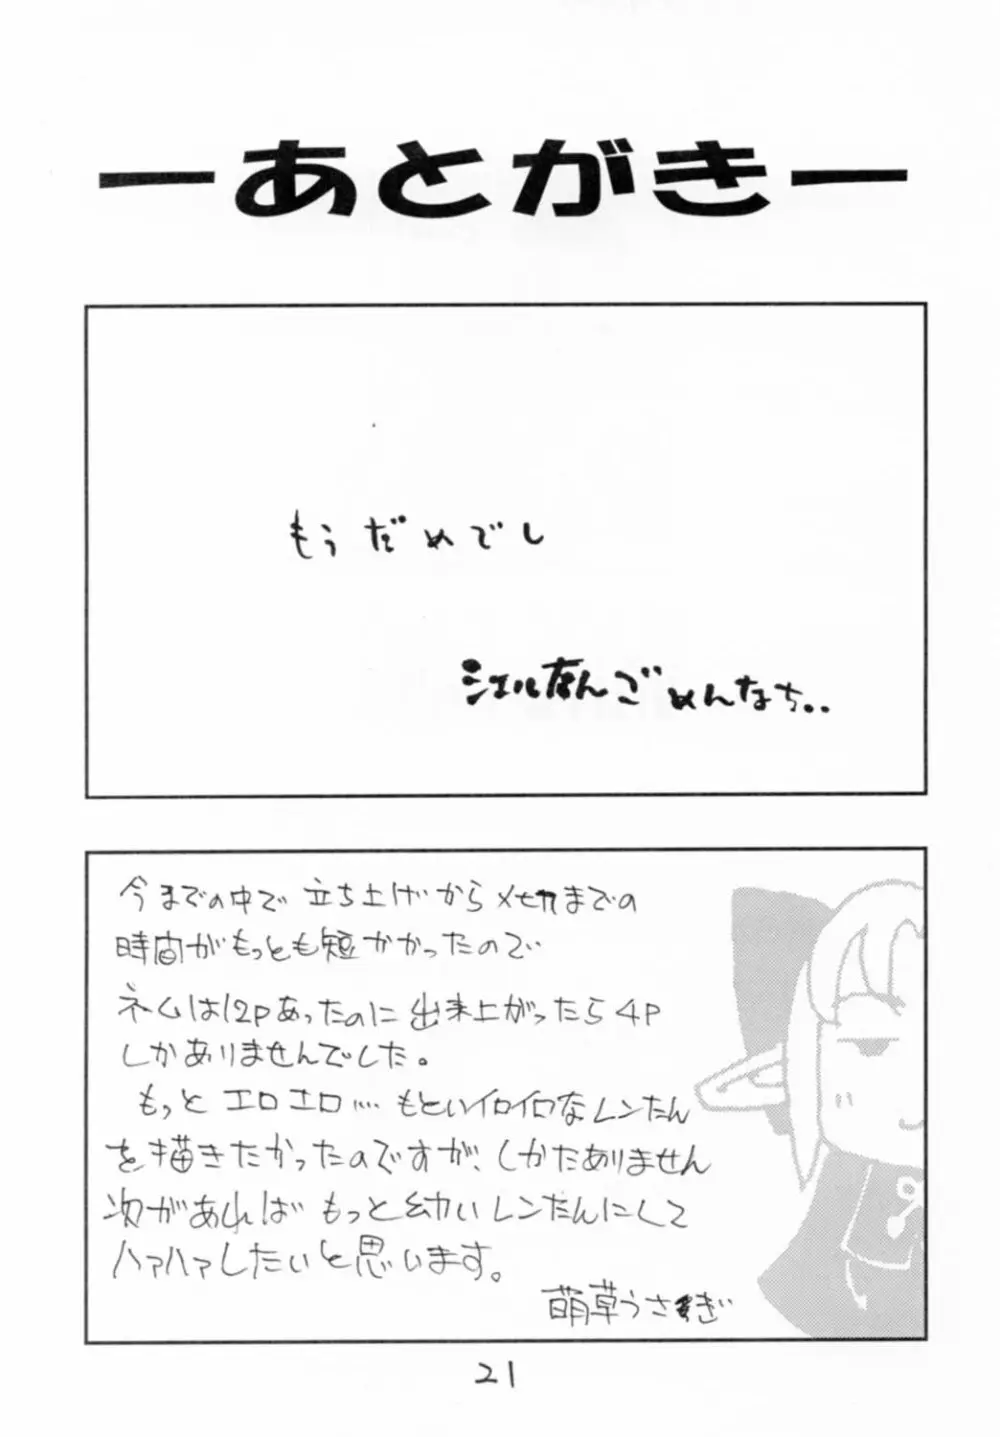 ーあとがきー
もうだめでし
シエルたんごめんなち..
今までの中で立ち上げからメセカまでの
時間がもっとも短かかったので
ネムは12Pあったのに出来上がったら4P
しかありませんでした。
もっとエロエロ....もといイロイロなレンたん
を描きたかったのですが、しかたありません
次があればもっと幼いレンたんにして
ハァハァしたいと思います。
萌草うさぎ
21